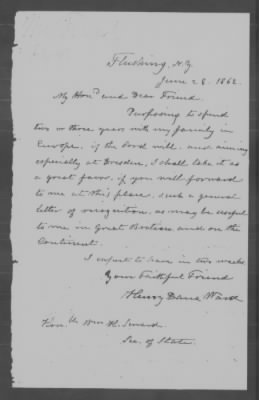 Flushing, N.Y.
June 28. 1862.
My Hon'd and Dear Friend.
Purposing to spend
two or three years with my family in
Europe, if the Lord will, and aiming
especially at Dresden, I shall take it as
a great favor, if you will forward
to me at this place, such a general
letter of recognition, as may be useful
to me in Great Britain and on the
Continent.
I expect to leave in two weeks
Your Faithful Friend
Henry Dana Ward
Hon. Wm H. Seward
Sec. of State.